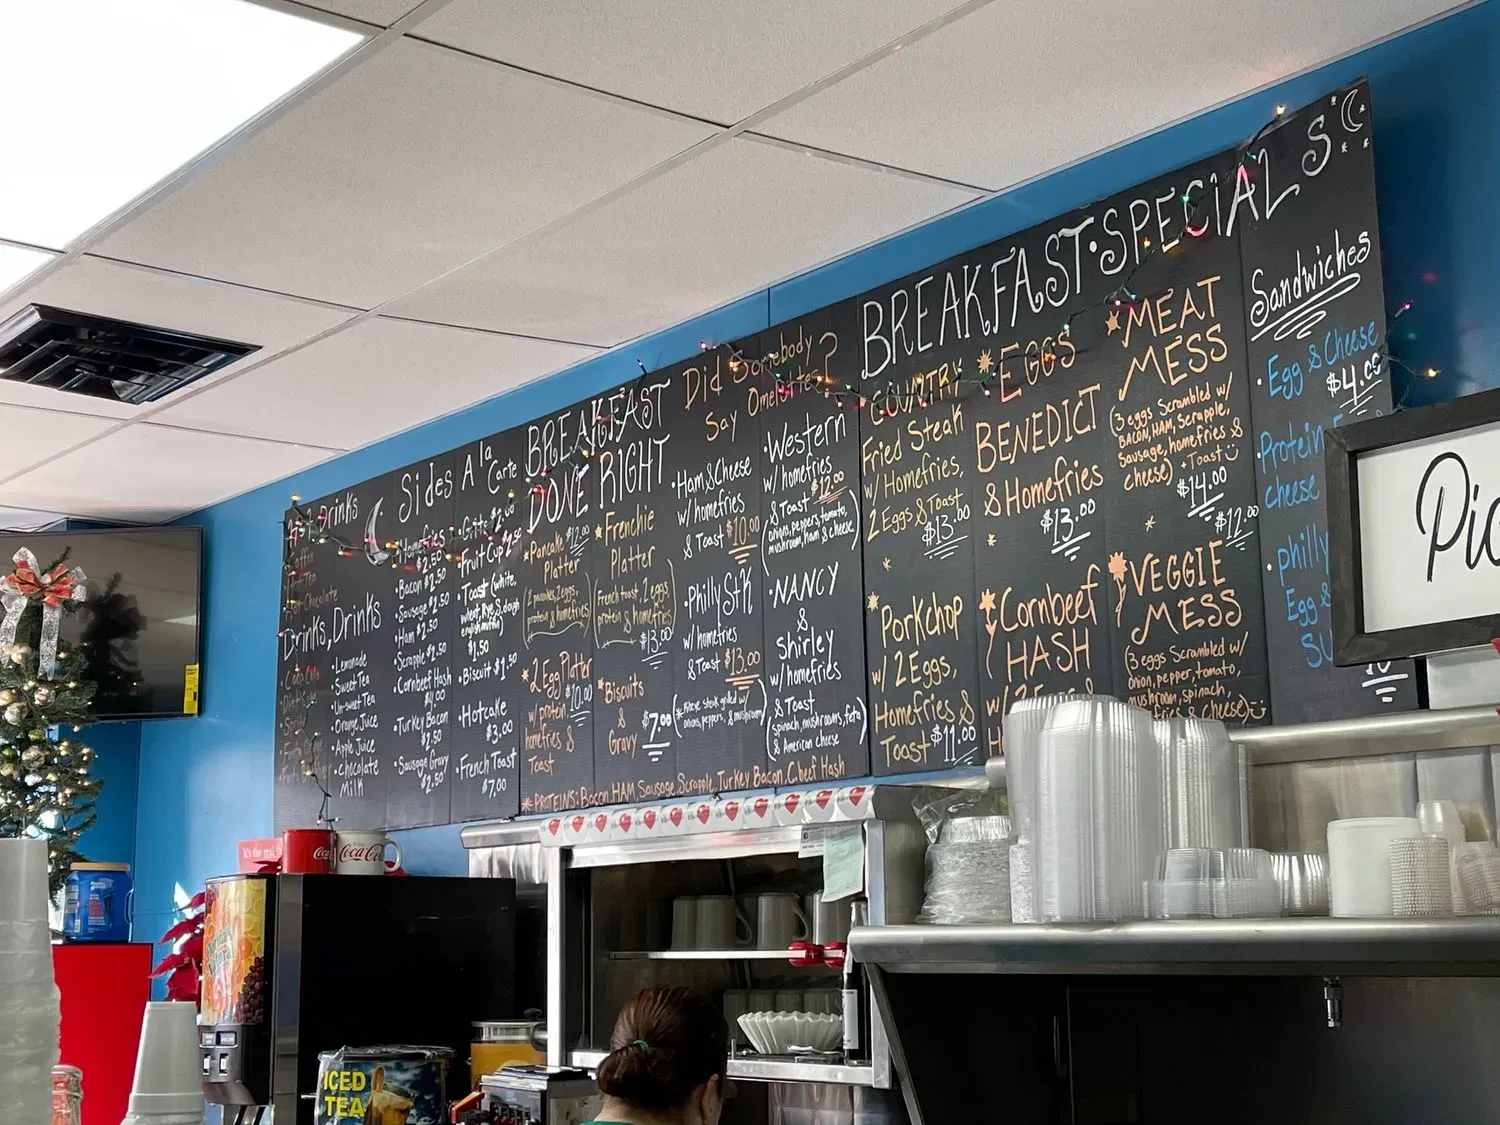 Drinks
Hot Chocolate
Drinks, Drinks
Coca Cola
• Lemonade
• Sweet Tea
• Un-sweet Tea
• Orange Juice
• Apple Juice
• chocolate
Milk
Sides A la
Carte
• Homefries
$2.50
• Bacon $2.50
• Sausage $2.50
• Ham $2.50
• Scrapple $2.50
• Cornbeef Hash
• Turkey Bacon
$2.50
• Sausage Gravy
$2.50
• Grits
• Fruit Cup
• Toast (white,
wheat, Rye, S.dough
english muffin)
$1.50
• Biscuit $1.50
• Hotcake
$3.00
• French Toast
$7.00
BREAKFAST
DONE RIGHT
* Pancake $12.00
Platter
(2 pancakes, 2 eggs,
protein & homefries)
* 2 Egg Platter
w/ protein $10.00
homefries &
Toast
* Frenchie
Platter
(French toast, 2 eggs
protein & homefries)
$13.00
* Biscuits
&
Gravy $7.00
* PROTEINS: Bacon, HAM, Sausage, Scrapple, Turkey Bacon, C.beef Hash
Did Somebody
Say Omelettes?
• Ham & Cheese
w/ homefries
& Toast $10.00
• Philly Stk
w/ homefries
& Toast $13.00
onions, peppers, & mushroom)
• Western
w/ homefries
& Toast $12.00
(onions, peppers, tomato,
mushroom, ham & cheese)
• NANCY
&
Shirley
w/ homefries
& Toast
(spinach, mushrooms, feta
& American cheese)
BREAKFAST • SPECIALS
COUNTRY
Fried Steak
w/ Homefries,
2 Eggs, & Toast
$13.00
* Porkchop
w/ 2 Eggs,
Homefries &
Toast $11.00
* EGGS
BENEDICT
& Homefries
$13.00
* Cornbeef
HASH
w/ 2
* MEAT
MESS
(3 eggs Scrambled w/
BACON, HAM, Scrapple,
Sausage, homefries &
cheese) + Toast
$14.00
$12.00
* VEGGIE
MESS
(3 eggs Scrambled w/
onion, pepper, tomato,
mushroom, spinach,
& cheese)
Sandwiches
• Egg & Cheese
$4.00
• Protein
cheese
• philly
Egg &
Pic
It's the real
Coca-Cola
ICED
TEA